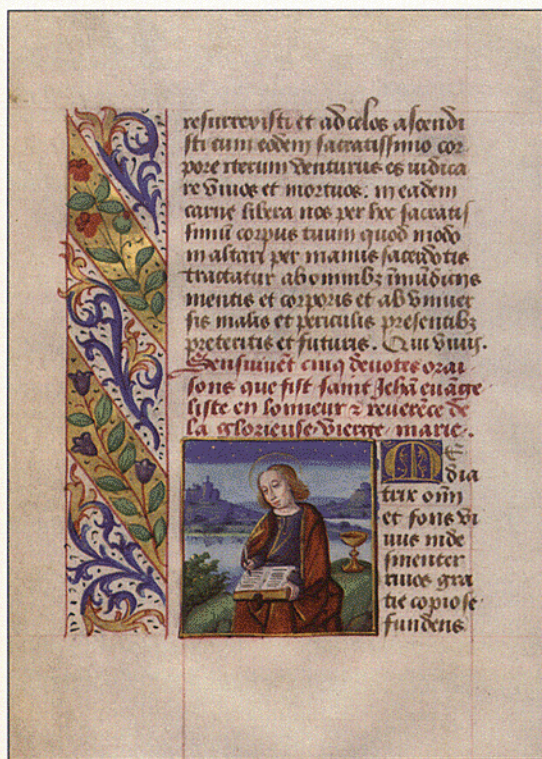 resurrexisti et ad celos ascendi
sti cum eodem sacratissimo cor
pore iterum venturus es iudica
re vivos et mortuos. in eadem
carne libera nos per hoc sacratis
simu corpus tuum quod modo
in altari per manus sacerdotis
tractatur ab omnibz inmudicijs
mentis et corporis et ab univer
sis malis et periculis presentibz
preteritis et futuris. Qui vivis.
Sensuivet cinq devotes orai
sons que fist saint Jehā evāge
liste en lonneur ⁊ reverēce de
la glorieuse vierge marie.
Me
dia
trix oīm
et fons vi
vus inde
sinenter
rivos gra
tie copiose
fundens